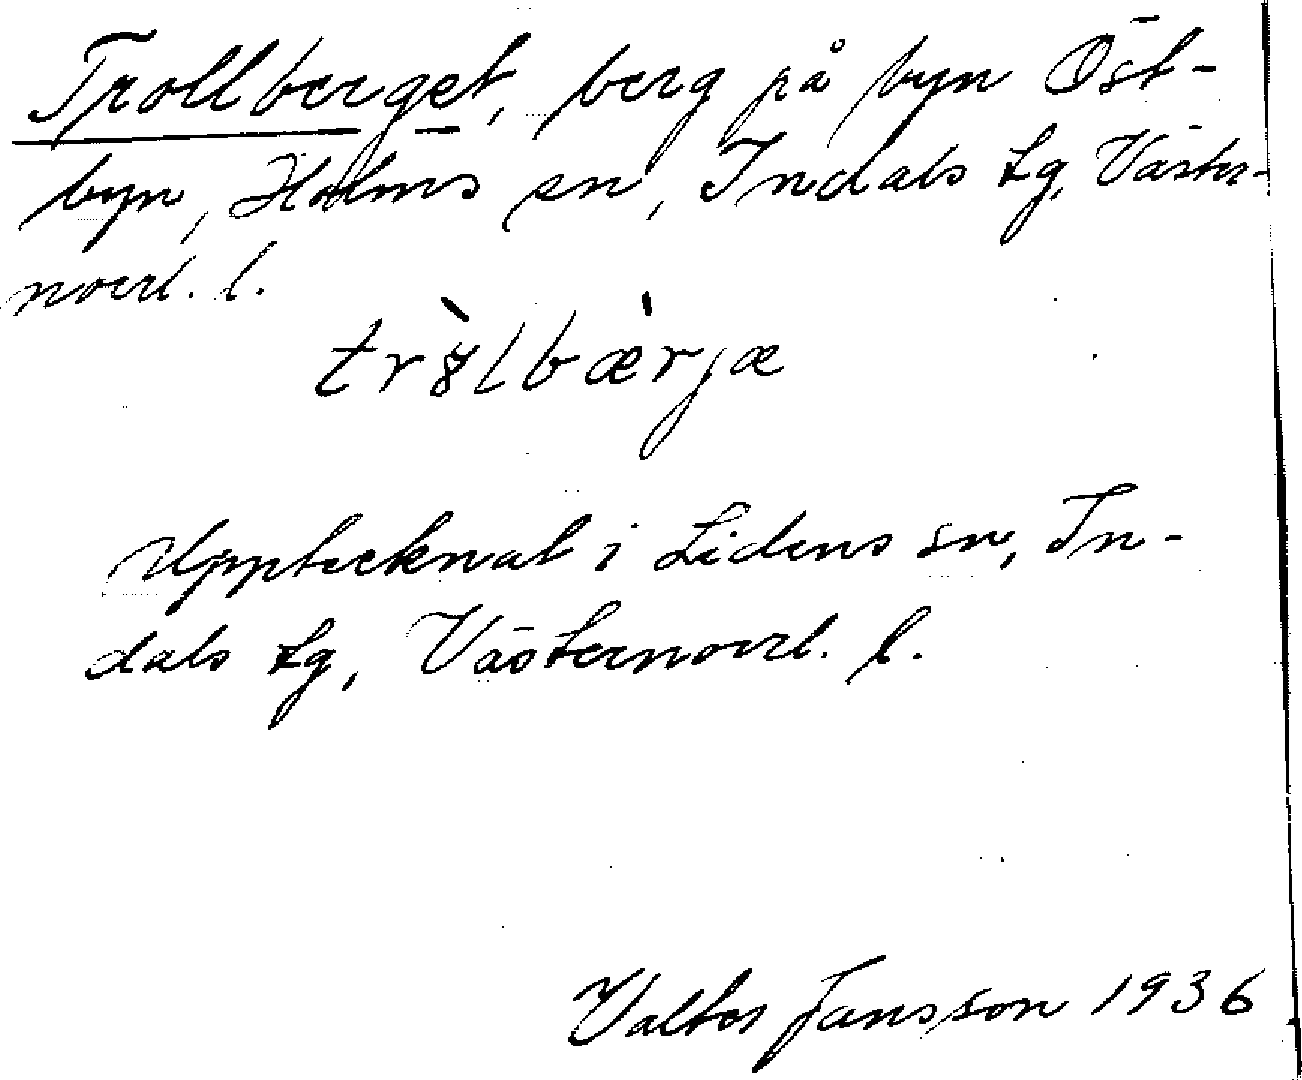 Trollberget, berg på byn Öst-
byn, Holms sn, Indals tg, Väster-
norrl. l.
tròlbærjæ
Upptecknat i Lidens sn, In-
dals tg, Västernorrl. l.
Valter Jansson 1936